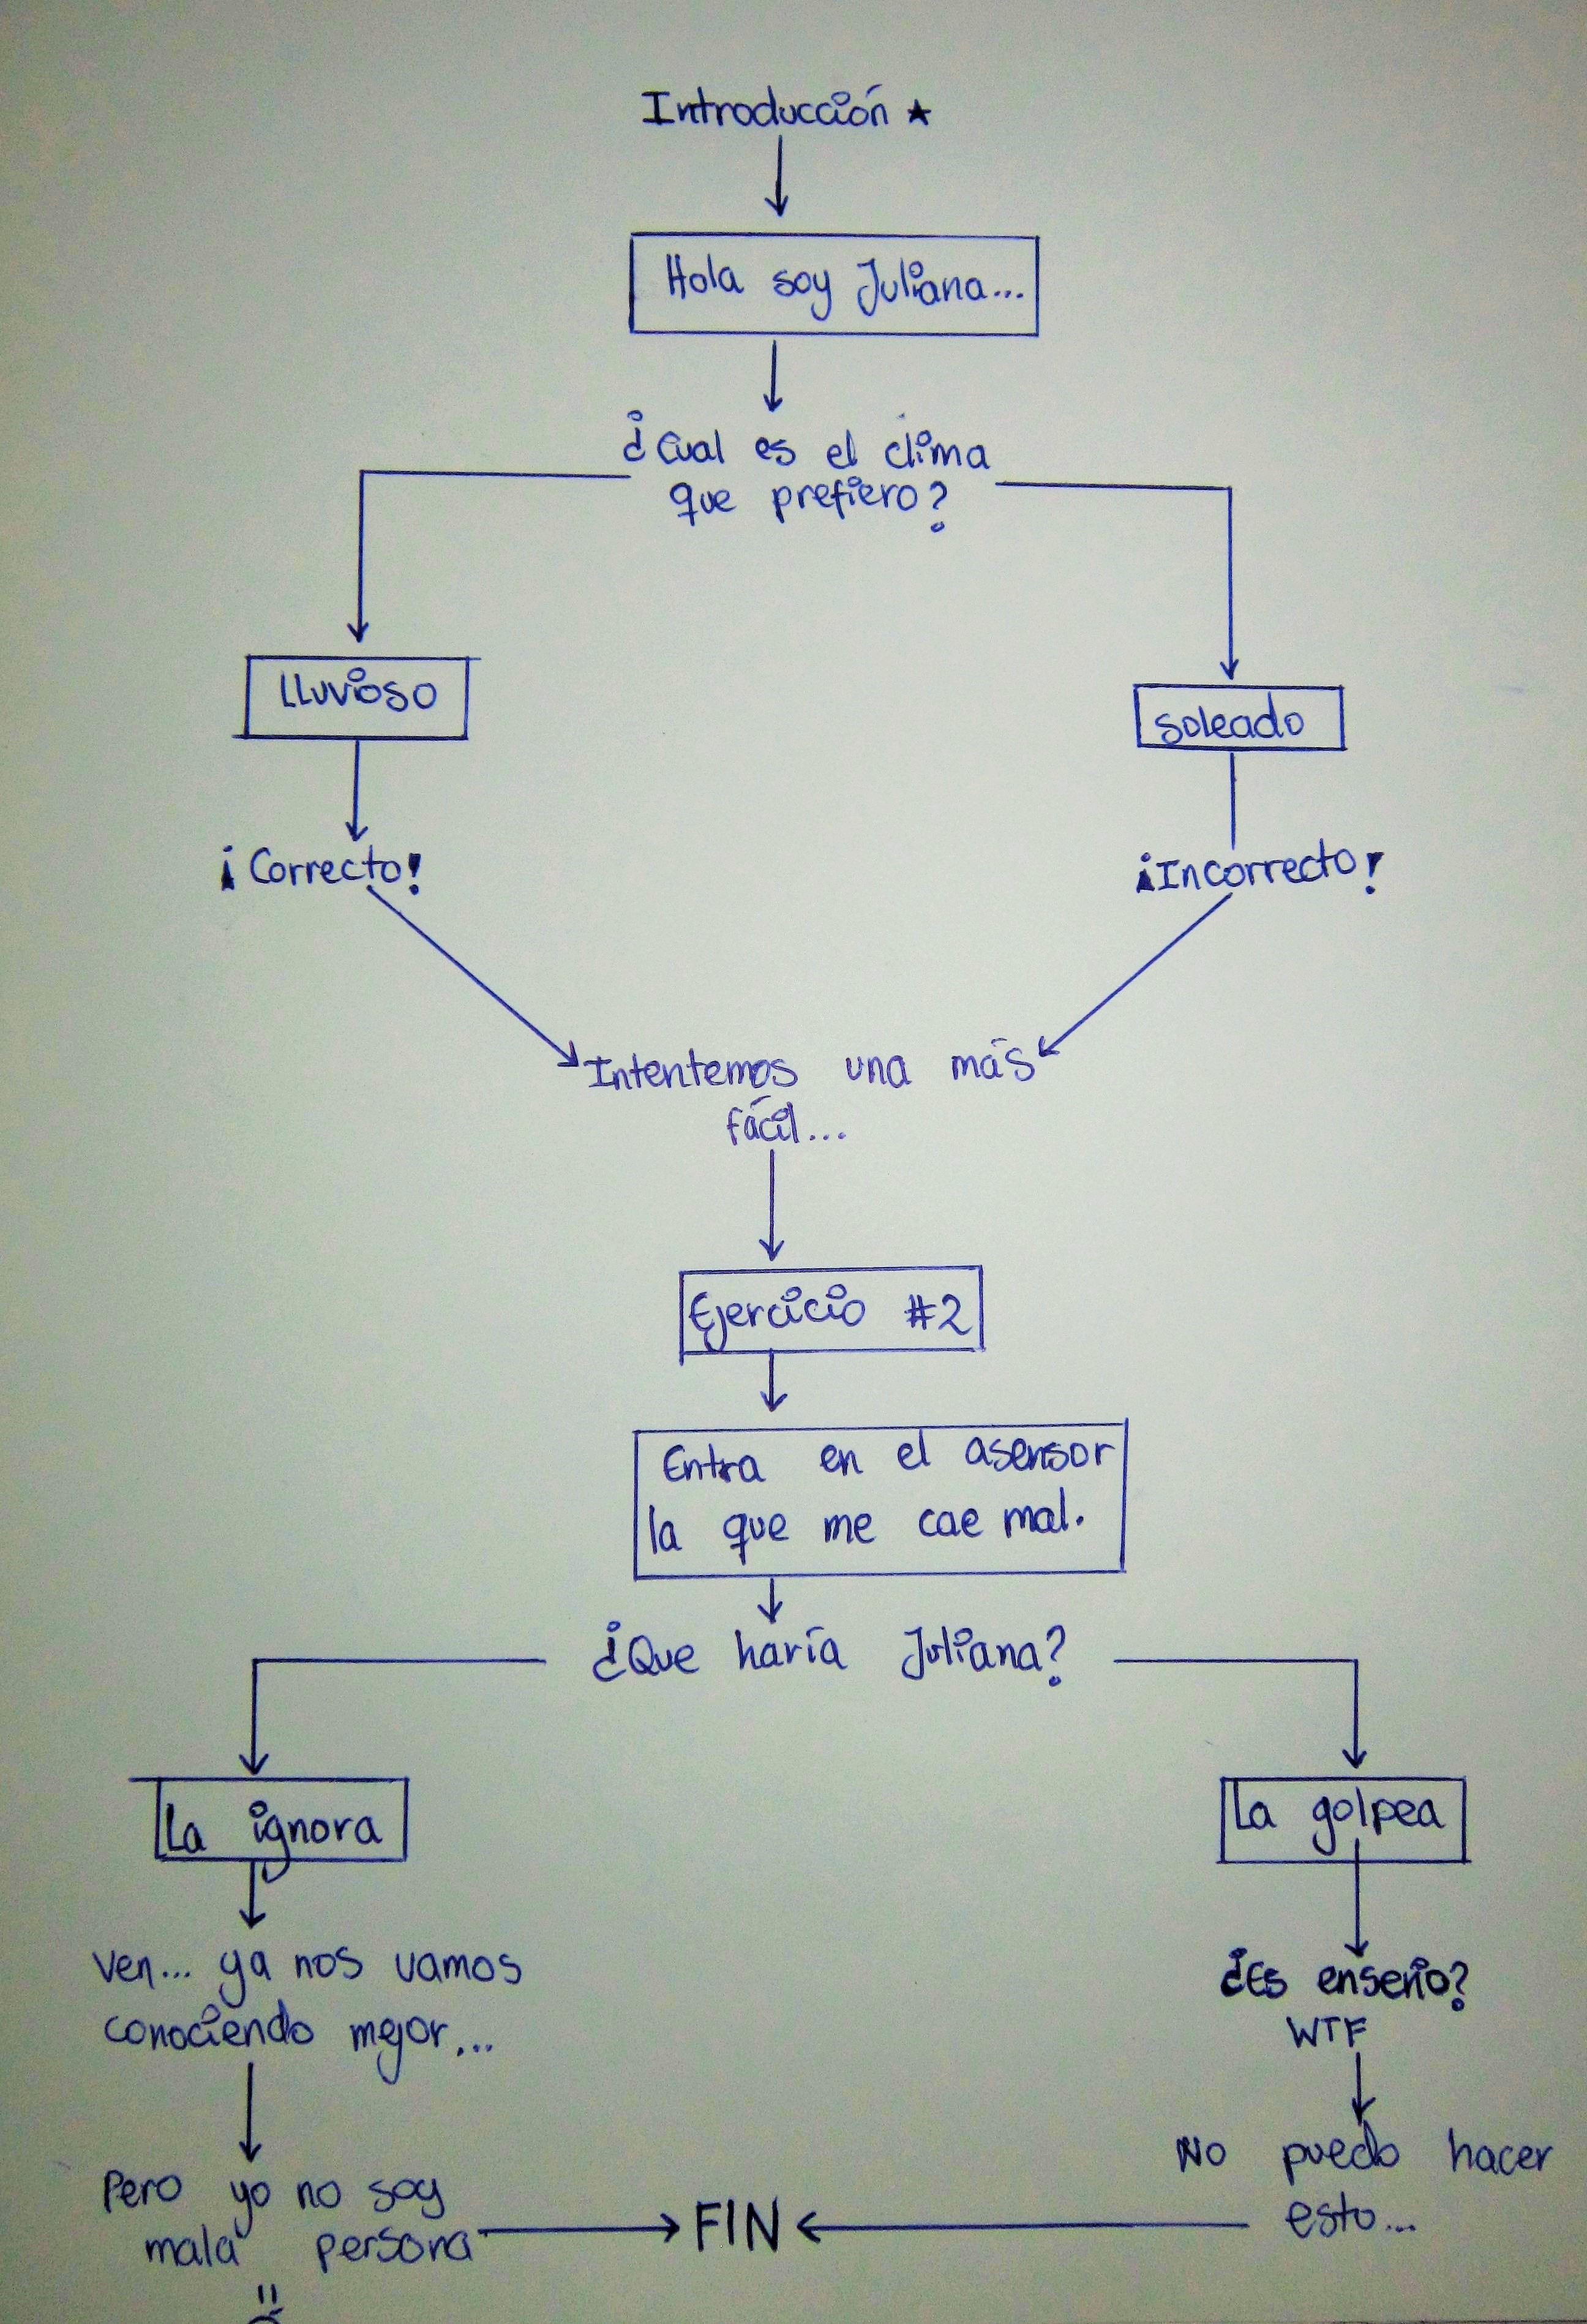 Introducción ★
Hola soy Juliana...
¿Cual es el clima
que prefiero?
Lluvioso
soleado
¡Correcto!
¡Incorrecto!
Intentemos una más
fácil...
Ejercicio #2
Entra en el asensor
la que me cae mal.
¿Que haría Juliana?
La ignora
La golpea
Ven... ya nos vamos
conociendo mejor...
¿Es enserio?
WTF
Pero yo no soy
mala persona
No puedo hacer
esto...
FIN